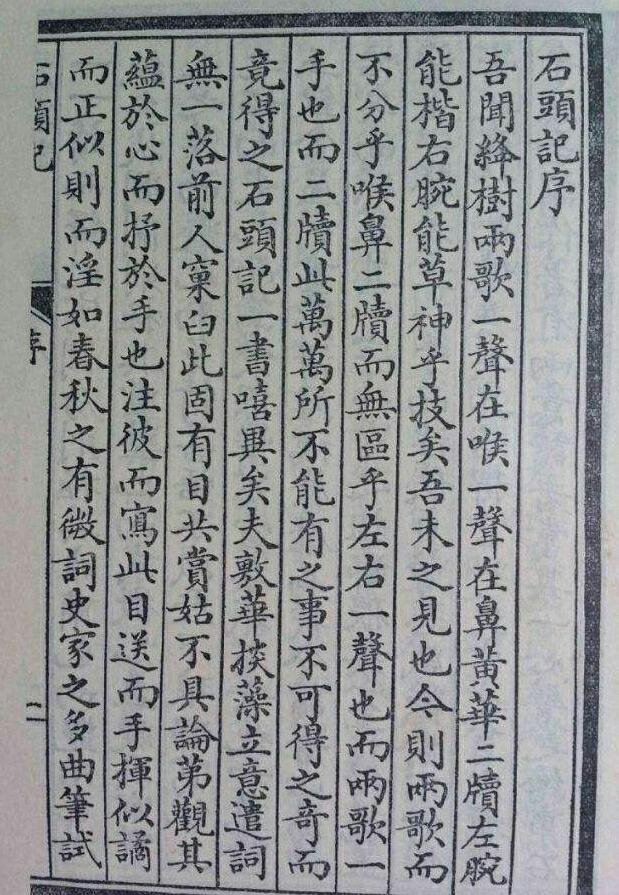 石頭記序
吾聞絳樹兩歌一聲在喉一聲在鼻黃華二牘左腕
能楷右腕能草神乎技矣吾未之見也今則兩歌而
不分乎喉鼻二牘而無區乎左右一聲也而兩歌一
手也而二牘此萬萬所不能有之事不可得之奇而
竟得之石頭記一書嘻異矣夫敷華掞藻立意遣詞
無一落前人窠臼此固有目共賞姑不具論第觀其
蘊於心而抒於手也注彼而寫此目送而手揮似譎
而正似則而淫如春秋之有微詞史家之多曲筆試
石頭記
序
二